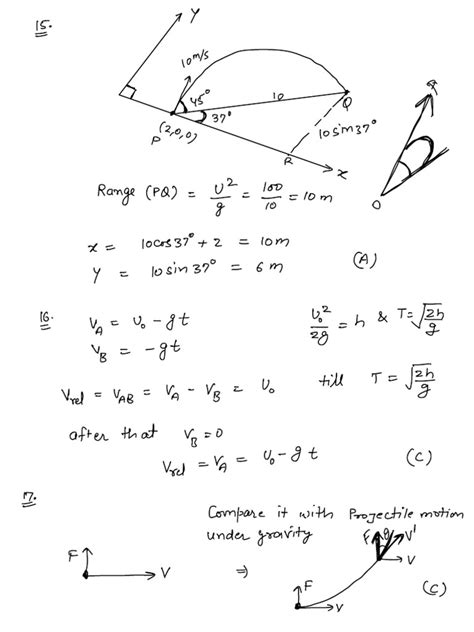 15.
Y
10m/s
45°
10
Q
37°
P
(2,0,0)
10sin37°
R
x
O
Range (PQ) = U²/g = 100/10 = 10m
x = 10cos37° + 2 = 10m
Y = 10sin37° = 6m (A)
16.
V_A = U₀ - gt
V_B = -gt
U₀²/2g = h & T = √(2h/g)
V_rel = V_AB = V_A - V_B = U₀ till T = √(2h/g)
after that V_B = 0
V_rel = V_A = U₀ - gt (C)
17.
Compare it with Projectile motion
under gravity
F
V
⇒
F
V
F
V'
V
(C)